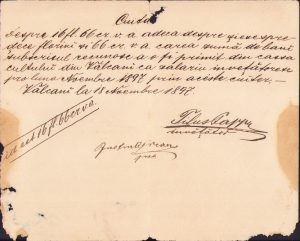 Cuită
despre 16 fl. 66 cr. v. a. adeca despre șiesespre-
dece florini și 66 cr. v. a. carea sumă de bani
subscrisul recunosc a o fi primit din cassa
cultului din Vălcani ca salariu învățătoresc
pro luna Noemvre 1897 prin aceste cuite. —
Vălcani la 18 Noemvre 1897.
Titus Popp
învățător
16 fl. 66 cr. v. a.